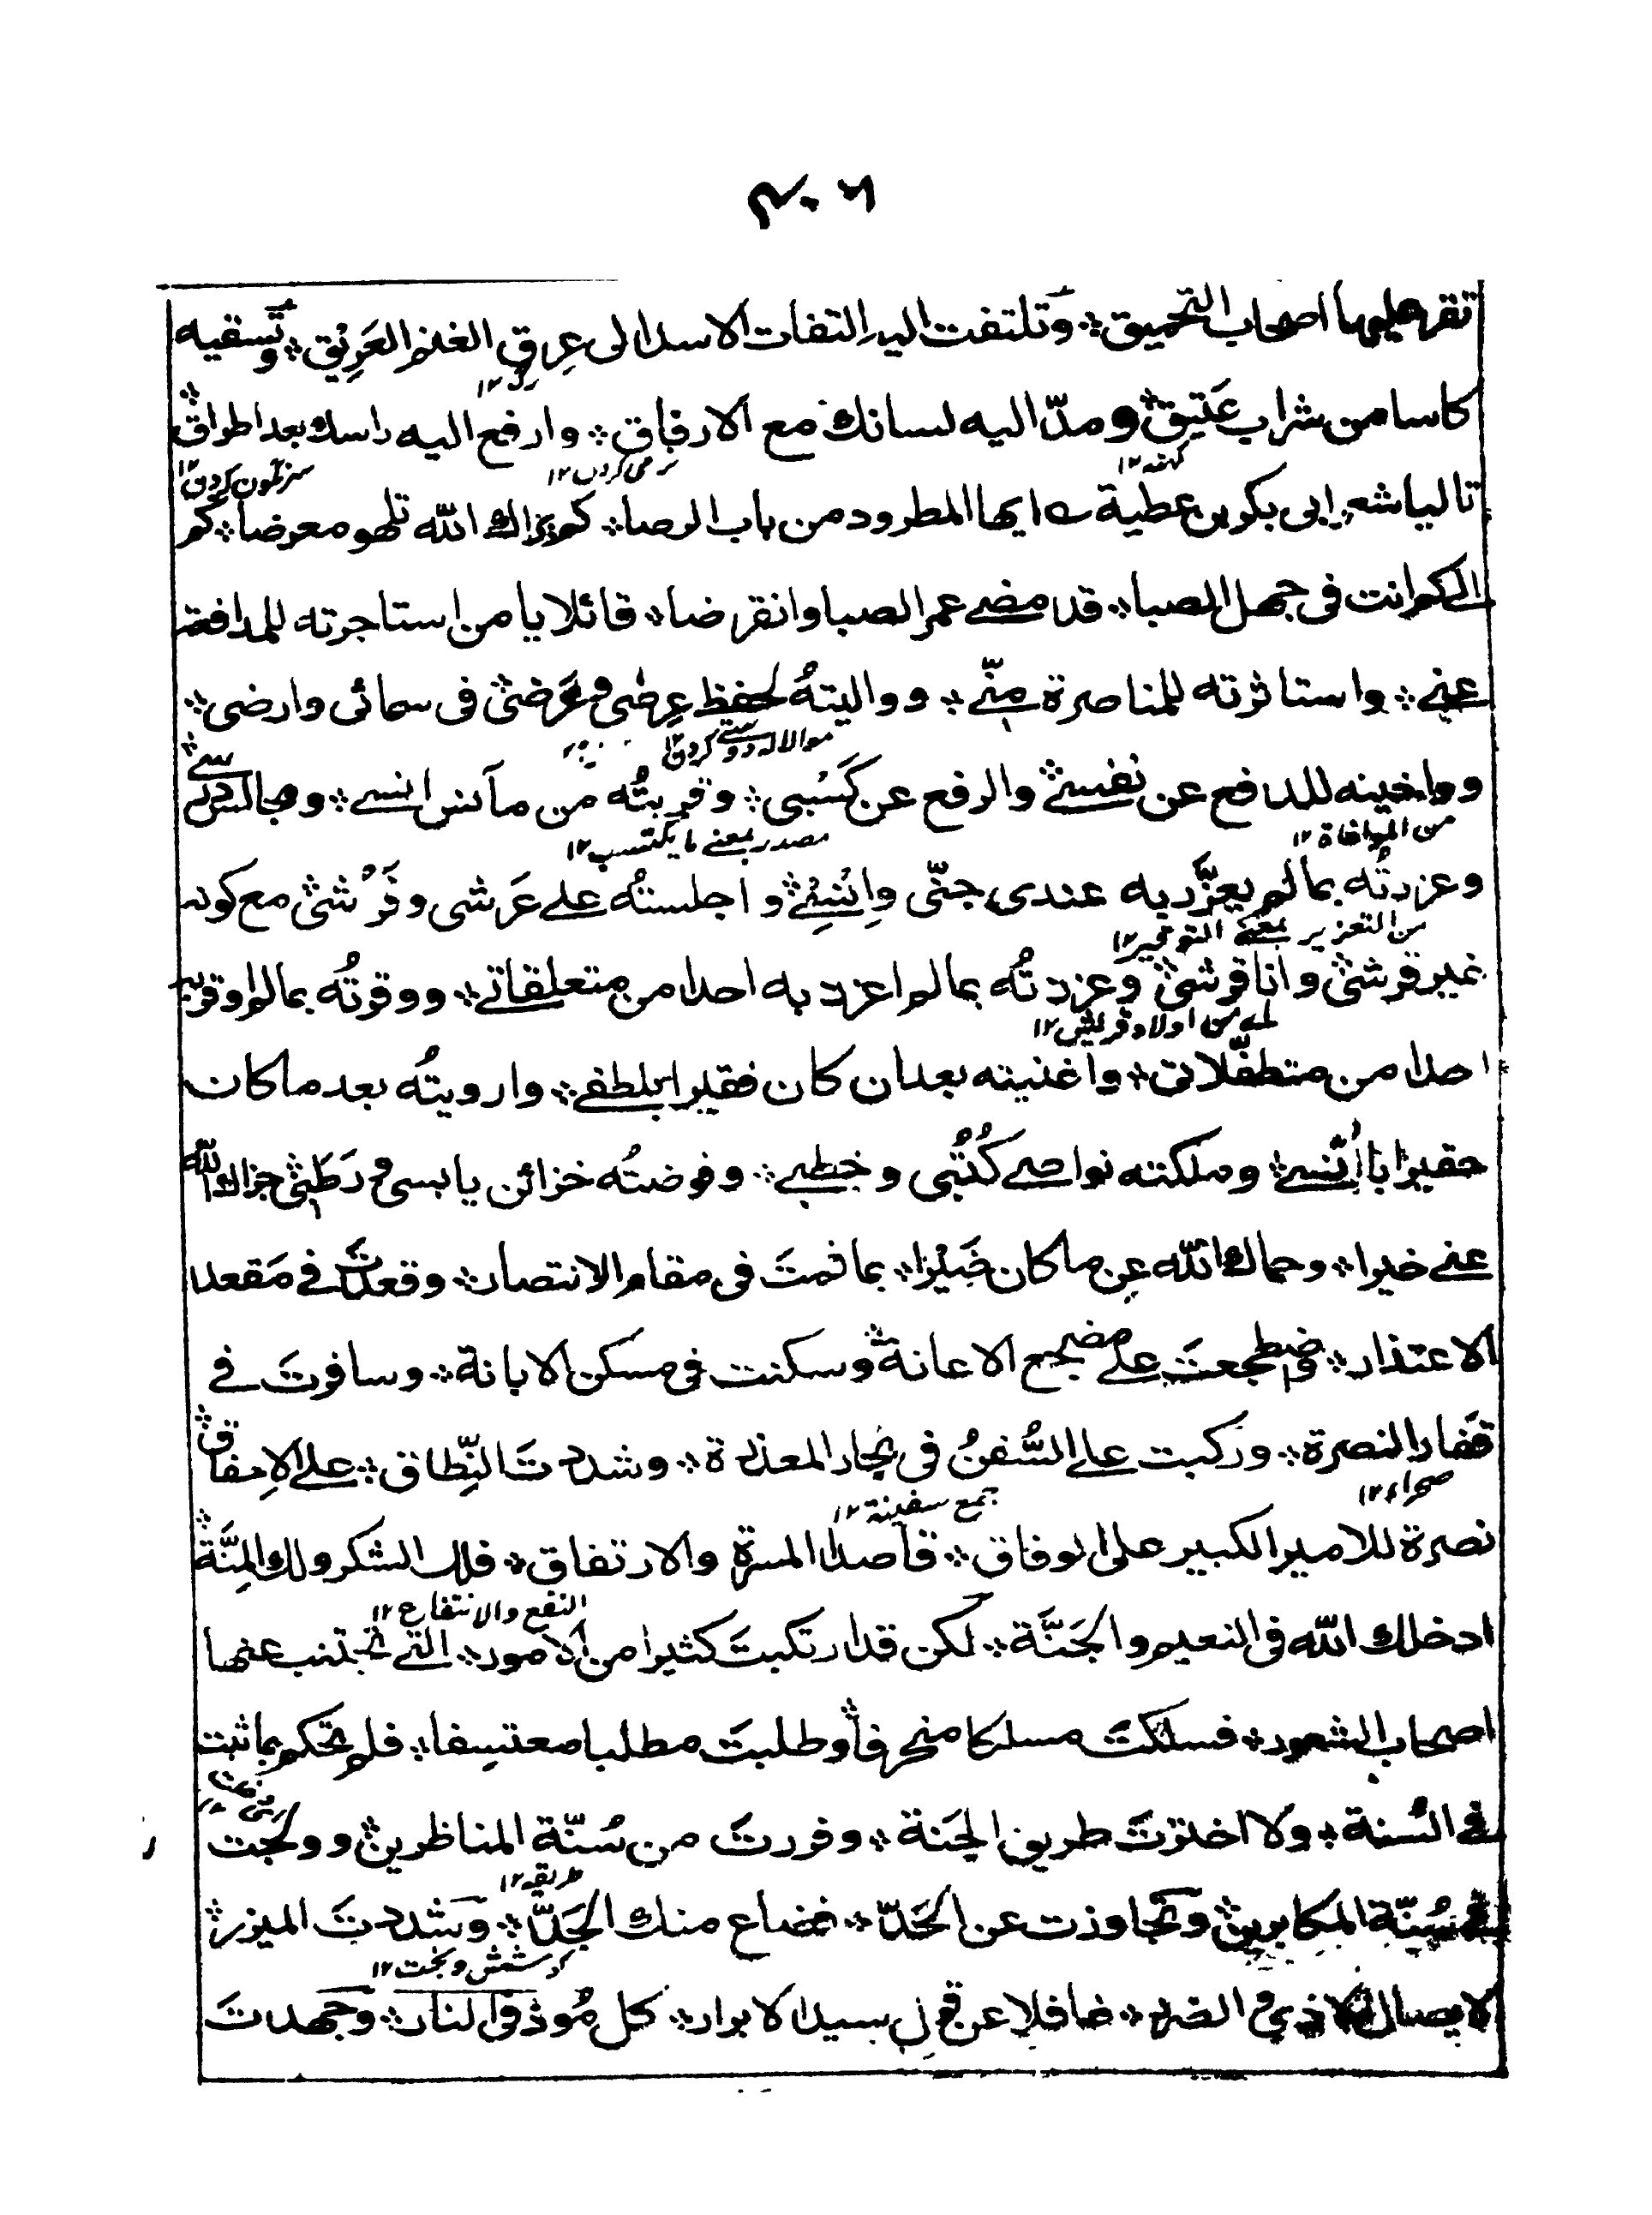 ۴۰۶
تقر عليها اصحاب التحميق ۞ وتلتفت اليه التفات الاسد الى عِرق الغنم العَرِيْق ۞ وتَسقيه
رگ ۱۲
كاسا من شراب عَتِيق ۞ ومدّ اليه لسانك مع الارفاق ۞ وارفع اليه راسك بعد اطراق ۞
كهنه ۱۲ نرمى كردن ۱۲ سرنگون كردن ۱۲
تاليا شعر ابى بكر بن عطية ؎ ايها المطرود من باب الرضا ۞ كم يراك الله تلهو معرضا ۞ كم
الے كم انت فى جهل الصبا ۞ قد مضے عمر الصبا وانقرضا ۞ قائلا يا من استاجرته للمدافعة
عنے ۞ واستاثرته للمناصرة منّے ۞ وواليتهُ لحفظ عِرضى وعَرَضى ۞ فى سمائى وارضى ۞
موالاة دوستى كردن ۱۲
وواخيته للدفع عن نفسے ۞ والرفع عن كَسْبى ۞ وقربتُه من مآنس انسے ۞ ومجالس درسے ۞
من المواخاة ۱۲ مصدر بمعنے ما يكتسب ۱۲
وعزرتُه بما لم يعزَّر به عندى جنّى وانسے ۞ واجلستهُ علے عَرشى وفَرْشى ۞ مع كونه
من التعزير بمعنے التوقير ۱۲
غير قرشى ۞ وانا قرشى ۞ وعززتُه بما لم اعزز به احدا من متعلقاتے ۞ ووقرتُه بما لم اوقر به
اے من اولاد قريش ۱۲
احدا من متطفّلاتى ۞ واغنيته بعد ان كان فقيرا بلطفے ۞ وارويتُه بعد ما كان
حقيرا بأُنسے ۞ وملكته نواصے كُتُبى وخطبے ۞ وفوضتُه خزائن يابسى ورَطَبى ۞ جزاك الله
عنے خيرا ۞ وحماك الله عن ما كان ضَيْرا ۞ بما قمتَ فى مقام الانتصار ۞ وقعدتَ فے مَقعد
الاعتذار ۞ واضطجعتَ علے مضجع الاعانة ۞ وسكنت فى مسكن الابانة ۞ وسافرتَ فے
قفار النصرة ۞ وركبت على السُّفنُ فى بحار المعذرة ۞ وشددتَ النِّطاق ۞ على الاِفاق ۞
صحراء ۱۲ جمع سفينة ۱۲
نصرة للامير الكبير على الوفاق ۞ قاصدا المسرة والارتفاق ۞ فلك الشكر ولك المِنَّة ۞
النفع والانتفاع ۱۲
ادخلك الله فى النعيم والجَنَّة ۞ لكن قد ارتكبتَ كثيرا من الامور ۞ التے تجتنب عنها
اصحاب الشعور ۞ فسلكتَ مسلكا منحرفا ۞ وطلبتَ مطلبا معتسِفا ۞ فلم تحكم بما ثبت
فے السُنة ۞ ولا اخترتَ طريق الجَنة ۞ وفررتَ من سُنّة المناظرين ۞ وولجت
طريقه ۱۲
فے سُنّة المكابرين ۞ وتجاوزت عن الحَدّ ۞ فضاع منك الجَدّ ۞ وشددتَ الميزر ۞
كوشش وبخت ۱۲
لايصال الاذى والضرر ۞ غافلا عن قول سيد الابرار ۞ كل مُوذ فى النار ۞ وجهدتَ